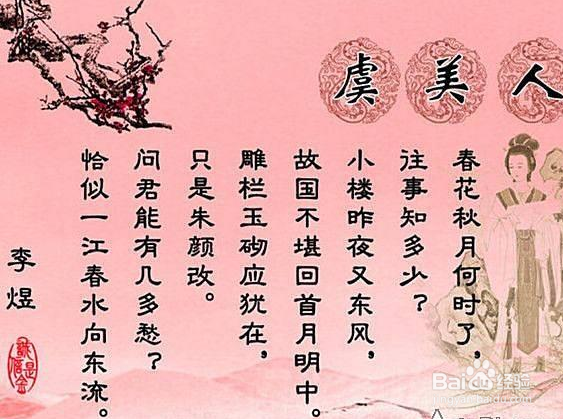 虞美人
春花秋月何时了，
往事知多少？
小楼昨夜又东风，
故国不堪回首月明中。
雕栏玉砌应犹在，
只是朱颜改。
问君能有几多愁？
恰似一江春水向东流。
李煜
Baidu经验